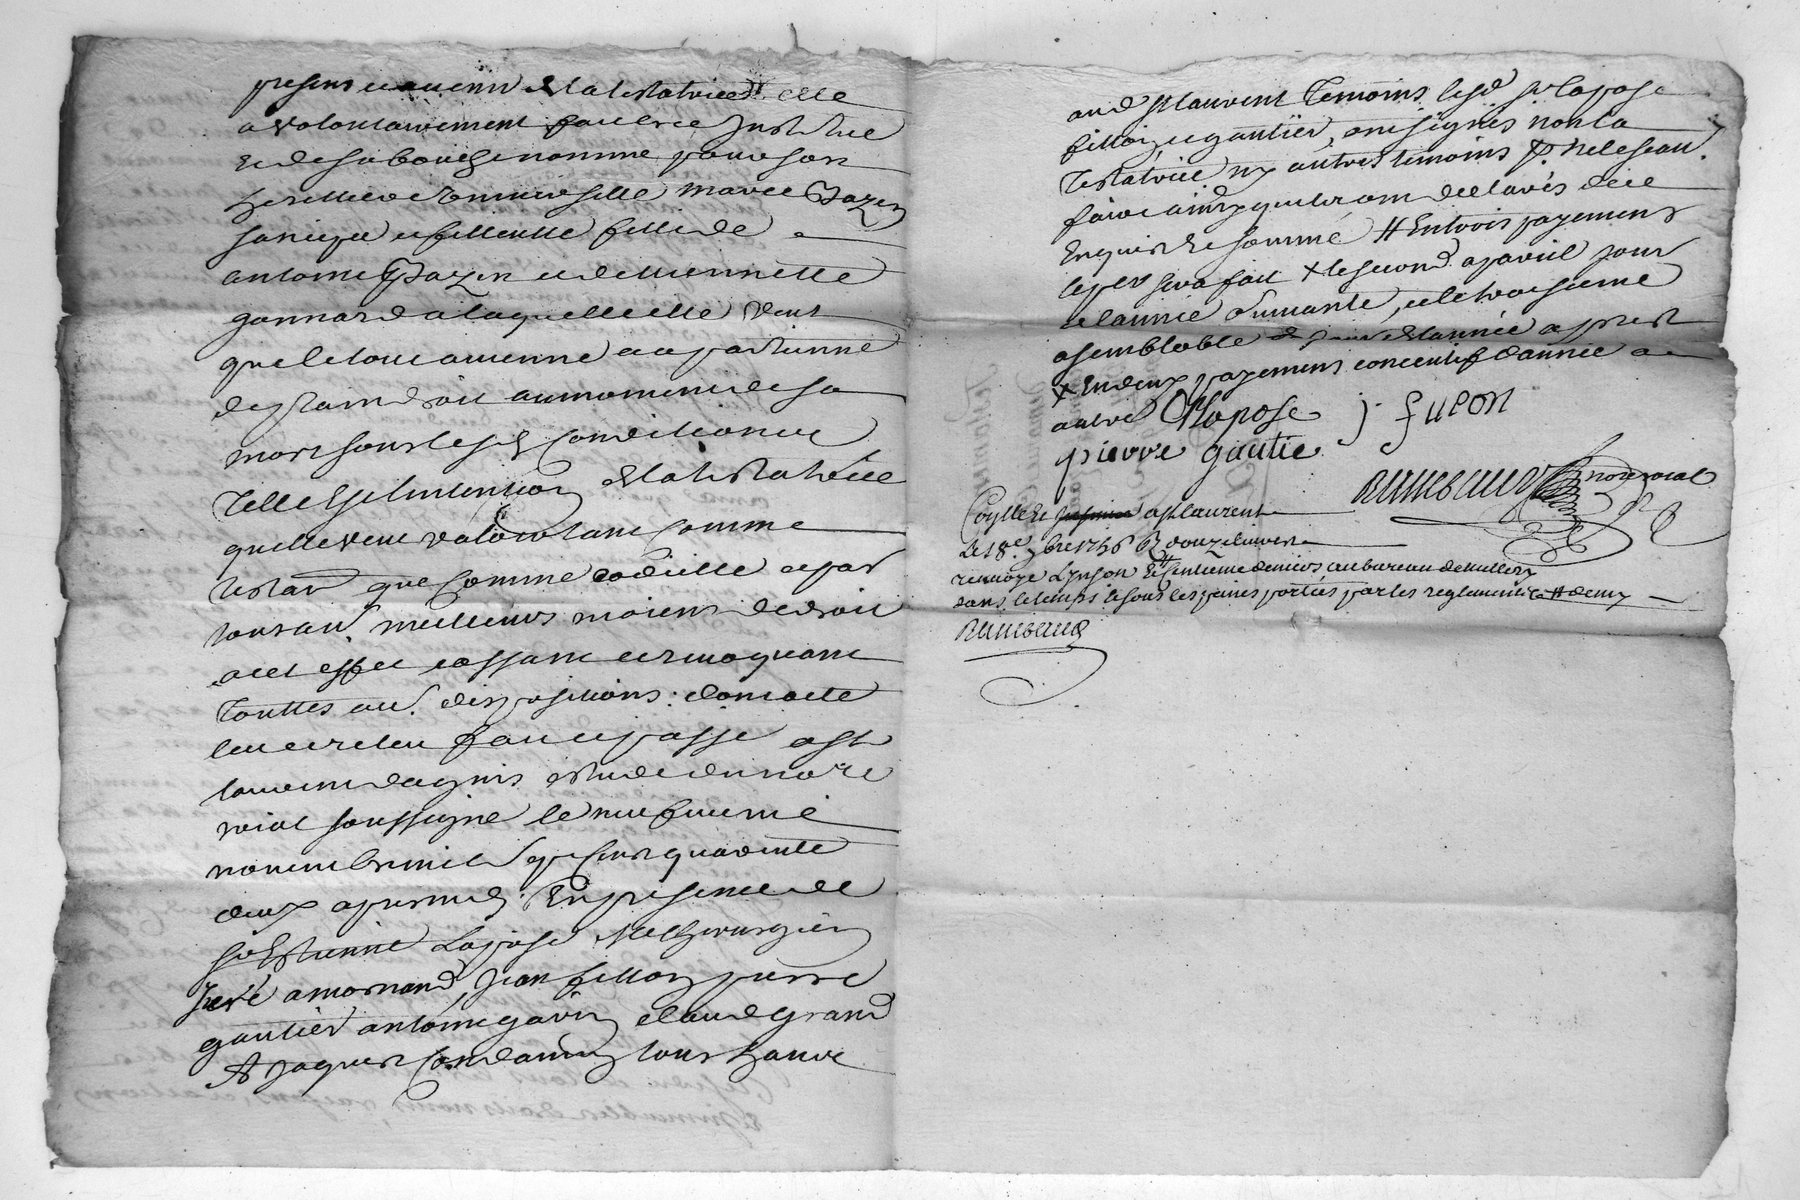 presens et avenir de la testatrice elle
a volontairement faict et institué
et de sa bouche nomme pour son
heritiere universelle marie Bazin
sa niepce et filleulle fille de
antoine Bazin et de Benoiette
gonnard a laquelle elle veut
que le tout avienne et apartienne
de plain droit au moment de sa
mort sous lesd conditions
Telle est l'intention de la testatrice
quelle veut valoir tant comme
testan. que comme codicille et par
tous au. meilleurs moiens de droit
a cet effet cassant et revoquant
Touttes au. dispositions: dont acte
leu et releu fait et passé a St
laurent dagnis etude du no.re
roial soussigné le neufvieme
novembre mil sept cent quarente
deux apres midy En presence de
Sr Estienne Lapose Me Chirurgien
Juré a mornand, Jean fillon pierre
gautier antoine gavin claude grand
& Jaques Condamin tous hants
aud St laurent Temoins lesd Sr lapose
fillon et gautier, ont signés non la
Testatrice ny autres temoins p. ne le scau.
faire ainsy quils ont declarés de ce
Enquis et sommé # En trois payemens
le per sera fait + le second a pareil jour
de lannée suivante, et le troisieme
a semblable de lannée apprest
+ En deux payemens concecutif dannée a
autre ELapose j. fileon
pierre gautie
not. roial
Coullé et a St laurent
Le 18e. 9bre 1746 R douze livres
renvoyé Lynson et centieme deniers au bureau de
dans le temps et sous les peines portées par les reglements # demy